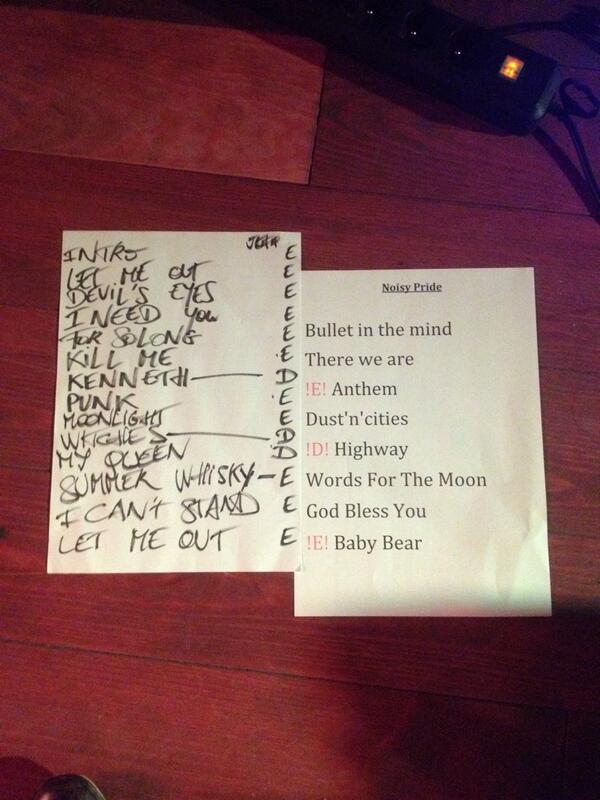 INTRO E
LET ME OUT E
DEVIL'S EYES E
I NEED YOU E
FOR SO LONG E
KILL ME E
KENNETH D
PUNK E
MOONLIGHT E
WITCHES D
MY QUEEN D
SUMMER WHISKY E
I CAN'T STAND E
LET ME OUT E
Noisy Pride
Bullet in the mind
There we are
!E! Anthem
Dust'n'cities
!D! Highway
Words For The Moon
God Bless You
!E! Baby Bear